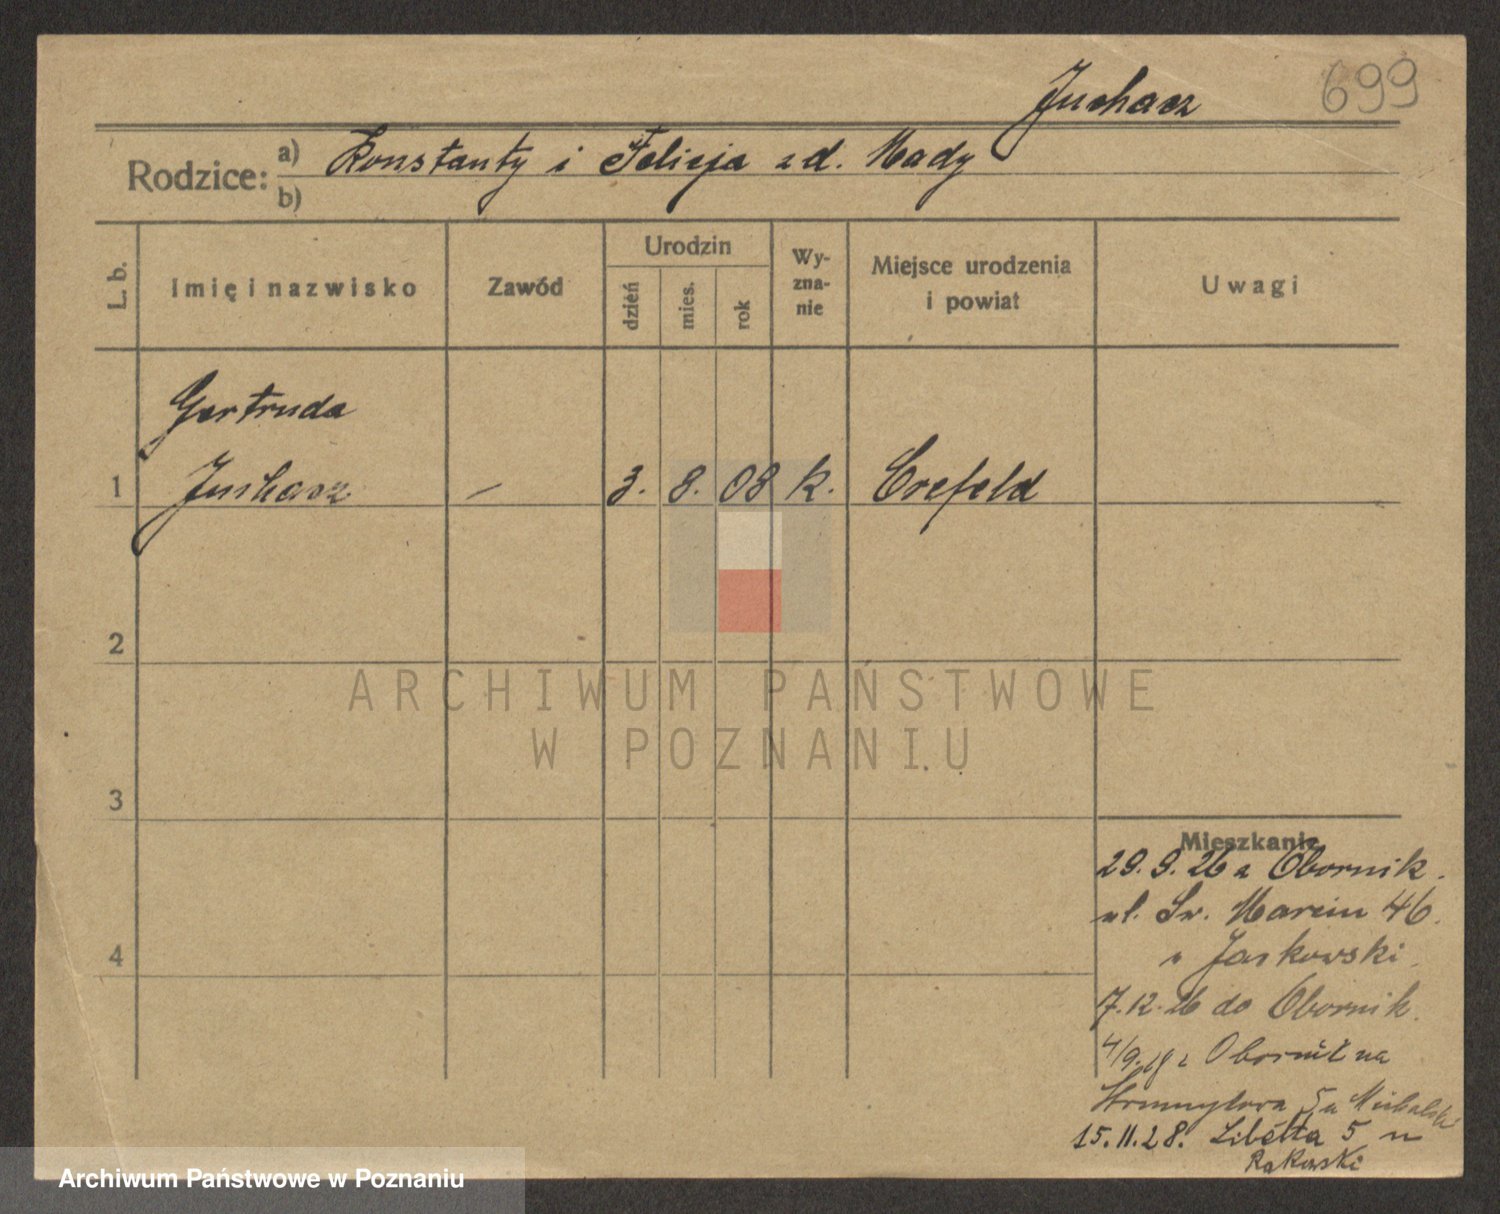 699
Juchacz
Rodzice: a) Konstanty i Felicja z d. Mady
b)
L. b.
Imię i nazwisko
Zawód
Urodzin
dzień
mies.
rok
Wy-
zna-
nie
Miejsce urodzenia
i powiat
Uwagi
Gertruda
1 Juchacz – 3. 8. 08 k. Crefeld
2
ARCHIWUM PAŃSTWOWE
W POZNANIU
3
4
Mieszkanie
29. 9. 26 z Obornik.
ul. Św. Marcin 46.
u Jaskowski.
7.12.26 do Obornik.
4/9.28 z Obornik na
5 u
15.11.28. Libelta 5 u
Rakowski
Archiwum Państwowe w Poznaniu